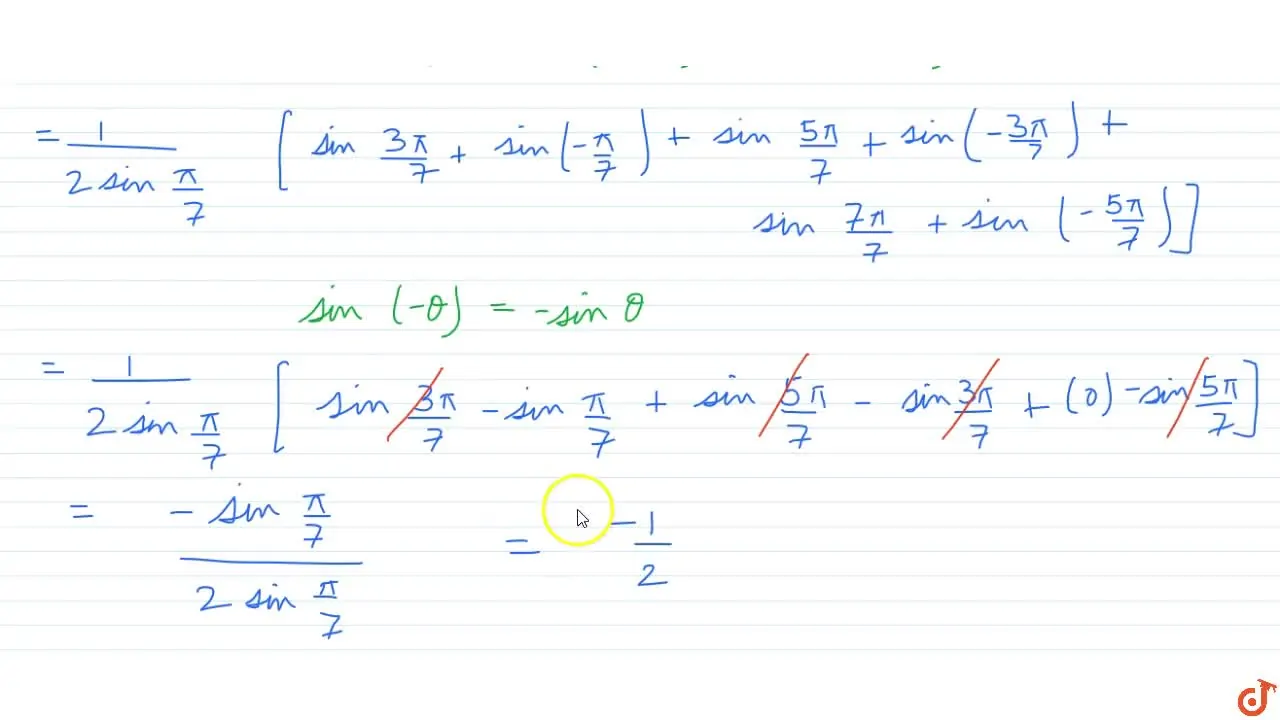 = 1/(2 sin π/7) [ sin 3π/7 + sin(-π/7) + sin 5π/7 + sin(-3π/7) +
sin 7π/7 + sin (-5π/7) ]
sin (-θ) = -sin θ
= 1/(2 sin π/7) [ sin 3π/7 - sin π/7 + sin 5π/7 - sin 3π/7 + (0) - sin 5π/7 ]
= - sin π/7 / 2 sin π/7 = -1/2